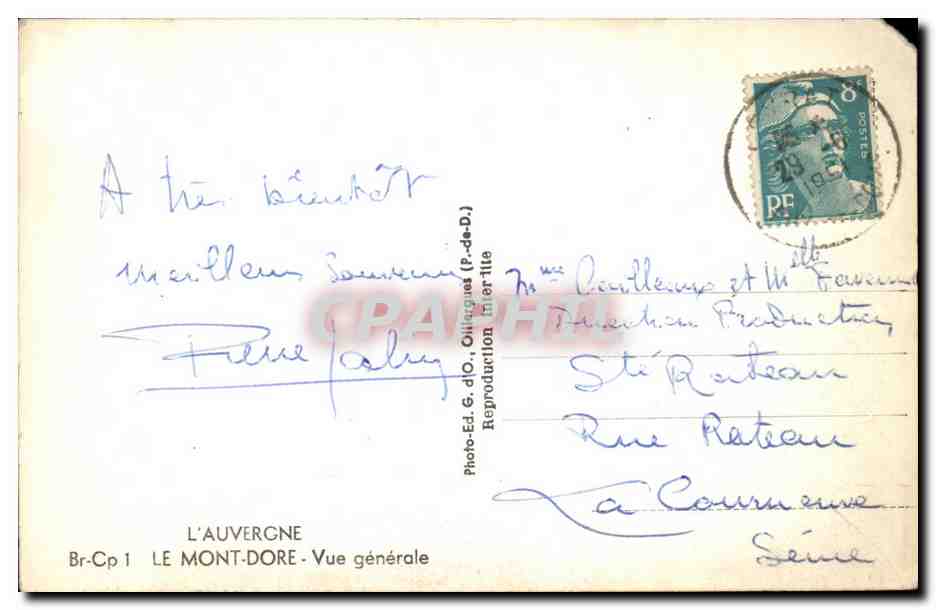 A très bientôt
meilleurs souvenirs
Pierre
Mme et Mlle
Direction Production
Sté Rateau
Rue Rateau
La Courneuve
Seine
8F
POSTES
RF
29
Photo-Ed. G. d'O., Olliergues (P.-de-D.)
Reproduction interdite
CPAPHIL
L'AUVERGNE
Br-Cp 1 LE MONT-DORE - Vue générale